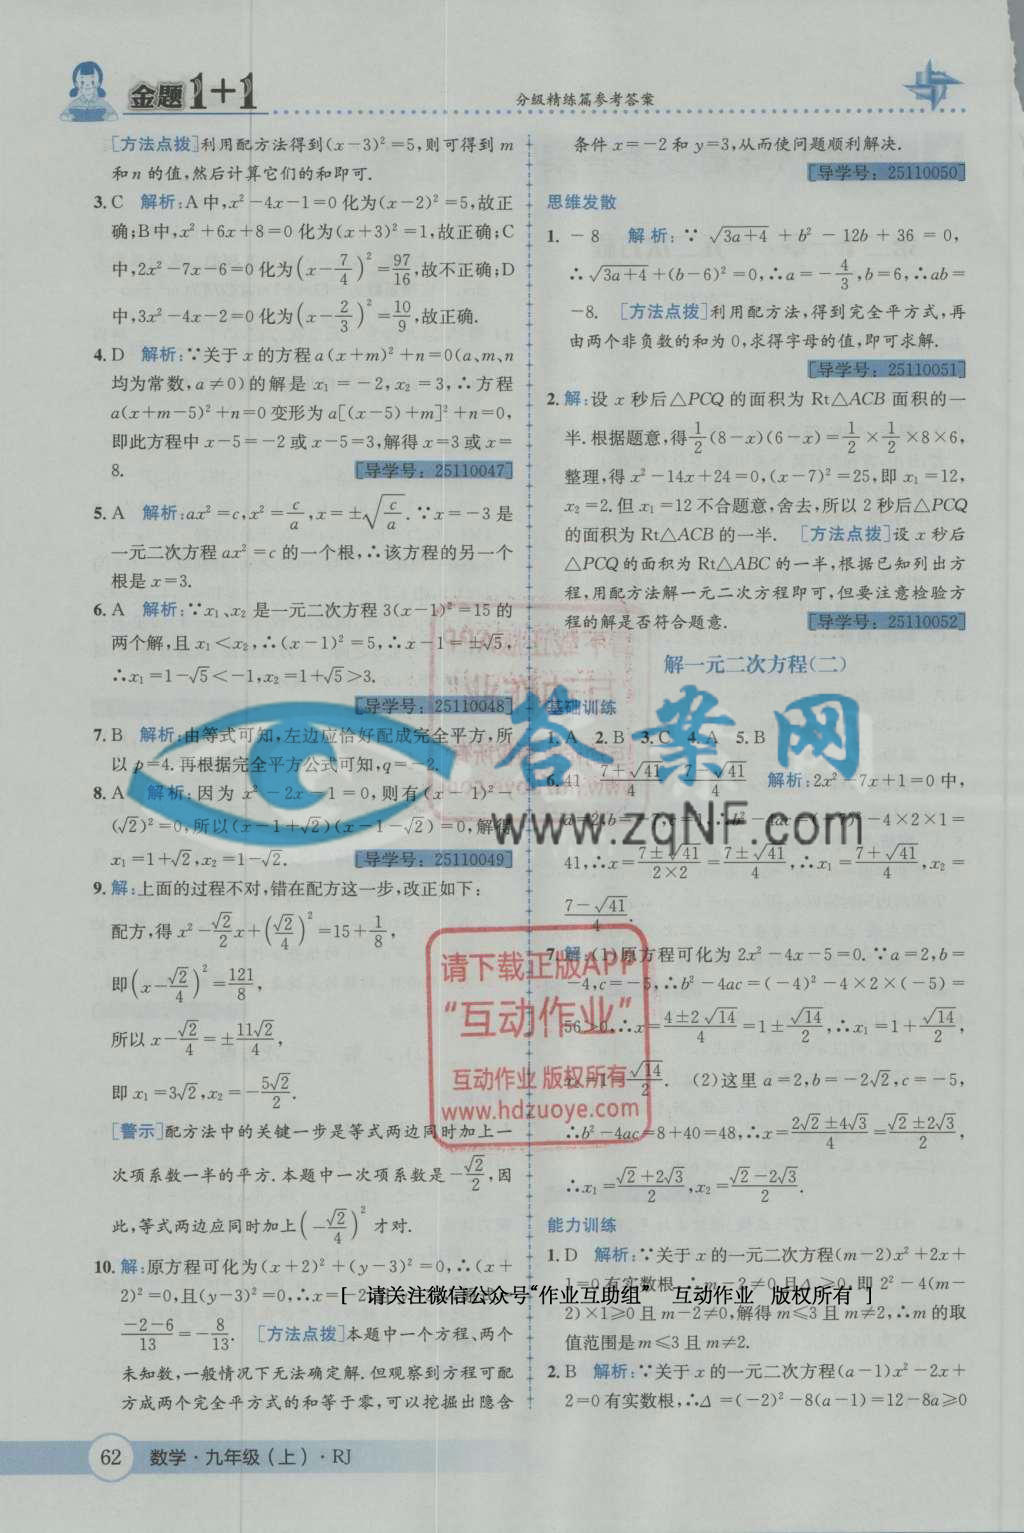 金题1+1
分级精练篇参考答案
[方法点拨]利用配方法得到(x-3)²=5,则可得到m
和n的值,然后计算它们的和即可.
3. C 解析:A中,x²-4x-1=0化为(x-2)²=5,故正
确;B中,x²+6x+8=0化为(x+3)²=1,故正确;C
中,2x²-7x-6=0化为(x-7/4)²=97/16,故不正确;D
中,3x²-4x-2=0化为(x-2/3)²=10/9,故正确.
4. D 解析:∵关于x的方程a(x+m)²+n=0(a、m、n
均为常数,a≠0)的解是x₁=-2,x₂=3,∴方程
a(x+m-5)²+n=0变形为a[(x-5)+m]²+n=0,
即此方程中x-5=-2或x-5=3,解得x=3或x=
8. [导学号:25110047]
5. A 解析:ax²=c,x²=c/a,x=±√(c/a).∵x=-3是
一元二次方程ax²=c的一个根,∴该方程的另一个
根是x=3.
6. A 解析:∵x₁、x₂是一元二次方程3(x-1)²=15的
两个解,且x₁<x₂,∴(x-1)²=5,∴x-1=±√5,
∴x₁=1-√5<-1,x₂=1+√5>3.
[导学号:25110048]
7. B 解析:由等式可知,左边应恰好配成完全平方,所
以p=4.再根据完全平方公式可知,q=-2.
8. A 解析:因为x²-2x-1=0,则有(x-1)²-
(√2)²=0,所以(x-1+√2)(x-1-√2)=0,解得
x₁=1+√2,x₂=1-√2. [导学号:25110049]
9. 解:上面的过程不对,错在配方这一步,改正如下:
配方,得x²-√2/2x+(√2/4)²=15+1/8,
即(x-√2/4)²=121/8,
所以x-√2/4=±11√2/4,
即x₁=3√2,x₂=-5√2/2.
[警示]配方法中的关键一步是等式两边同时加上一
次项系数一半的平方.本题中一次项系数是-√2/2,因
此,等式两边应同时加上(-√2/4)²才对.
10. 解:原方程可化为(x+2)²+(y-3)²=0,∴(x+
2)²=0,且(y-3)²=0,∴x=-2
(-2-6)/13=-8/13. [方法点拨]本题中一个方程、两个
未知数,一般情况下无法确定解.但观察到方程可配
方成两个完全平方式的和等于零,可以挖掘出隐含
条件x=-2和y=3,从而使问题顺利解决.
[导学号:25110050]
思维发散
1. -8 解析:∵√(3a+4)+b²-12b+36=0,
∴√(3a+4)+(b-6)²=0,∴a=-4/3,b=6,∴ab=
-8. [方法点拨]利用配方法,得到完全平方式,再
由两个非负数的和为0,求得字母的值,即可求解.
[导学号:25110051]
2. 解:设x秒后△PCQ的面积为Rt△ACB面积的一
半.根据题意,得1/2(8-x)(6-x)=1/2×1/2×8×6,
整理,得x²-14x+24=0,(x-7)²=25,即x₁=12,
x₂=2.但x₁=12不合题意,舍去,所以2秒后△PCQ
的面积为Rt△ACB的一半. [方法点拨]设x秒后
△PCQ的面积为Rt△ABC的一半,根据已知列出方
程,用配方法解一元二次方程即可,但要注意检验方
程的解是否符合题意. [导学号:25110052]
解一元二次方程(二)
基础训练
1. A 2. B 3. C 4. A 5. B
6. 41 (7+√41)/4 (7-√41)/4 解析:2x²-7x+1=0中,
a=2,b=-7,c=1,∴b²-4ac=(-7)²-4×2×1=
41,∴x=(7±√41)/(2×2)=(7±√41)/4,∴x₁=(7+√41)/4,x₂=
(7-√41)/4.
7. 解:(1)原方程可化为2x²-4x-5=0.∵a=2,b=
-4,c=-5,∴b²-4ac=(-4)²-4×2×(-5)=
56>0,∴x=(4±2√14)/4=1±√14/2,∴x₁=1+√14/2,
x₂=1-√14/2. (2)这里a=2,b=-2√2,c=-5,
∴b²-4ac=8+40=48,∴x=(2√2±4√3)/4=(√2±2√3)/2,
∴x₁=(√2+2√3)/2,x₂=(√2-2√3)/2.
能力训练
1. D 解析:∵关于x的一元二次方程(m-2)x²+2x+
1=0有实数根,∴m-2≠0且Δ≥0,即2²-4(m-
2)×1≥0且m-2≠0,解得m≤3且m≠2,∴m的取
值范围是m≤3且m≠2.
2. B 解析:∵关于x的一元二次方程(a-1)x²-2x+
2=0有实数根,∴Δ=(-2)²-8(a-1)=12-8a≥0
答案网
www.zqNF.com
请下载正版APP
“互动作业”
互动作业 版权所有
www.hdzuoye.com
[ 请关注微信公众号“作业互助组” 互动作业 版权所有 ]
62 数学·九年级(上)·RJ